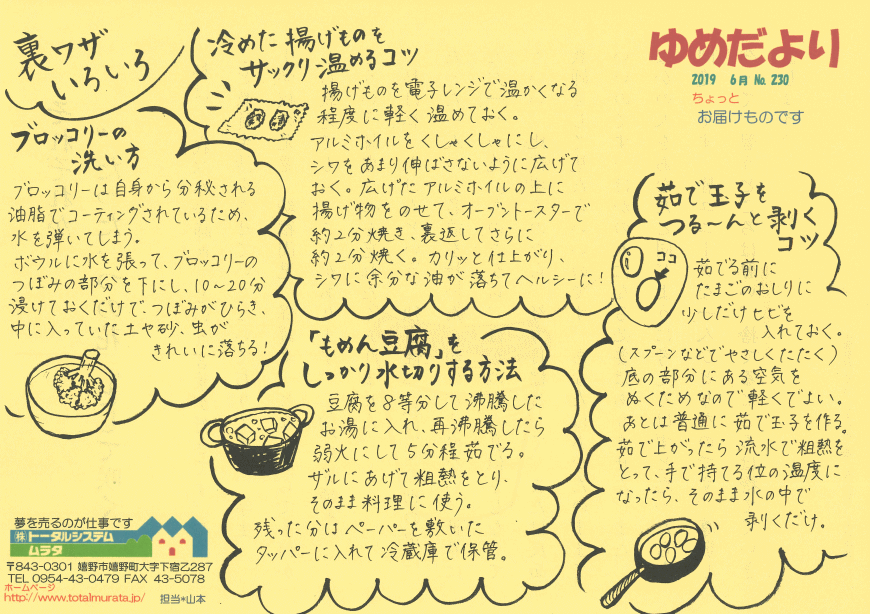 裏ワザ
いろいろ
冷めた揚げものを
サックリ温めるコツ
揚げものを電子レンジで温かくなる
程度に軽く温めておく。
アルミホイルをくしゃくしゃにし、
シワをあまり伸ばさないように広げて
おく。広げたアルミホイルの上に
揚げ物をのせて、オーブントースターで
約2分焼き、裏返してさらに
約2分焼く。カリッと仕上がり、
シワに余分な油が落ちてヘルシーに!
ゆめだより
2019 6月 No. 230
ちょっと
お届けものです
ブロッコリーの
洗い方
ブロッコリーは自身から分秘される
油脂でコーティングされているため、
水を弾いてしまう。
ボウルに水を張って、ブロッコリーの
つぼみの部分を下にし、10〜20分
浸けておくだけで、つぼみがひらき、
中に入っていた土や砂、虫が
きれいに落ちる!
「もめん豆腐」を
しっかり水切りする方法
豆腐を8等分して沸騰した
お湯に入れ、再沸騰したら
弱火にして5分程茹でる。
ザルにあげて粗熱をとり、
そのまま料理に使う。
残った分はペーパーを敷いた
タッパーに入れて冷蔵庫で保管。
茹で玉子を
つる〜んと剥く
コツ
ココ
茹でる前に
たまごのおしりに
少しだけヒビを
入れておく。
(スプーンなどでやさしくたたく)
底の部分にある空気を
ぬくためなので軽くでよい。
あとは普通に茹で玉子を作る。
茹で上がったら流水で粗熱を
とって、手で持てる位の温度に
なったら、そのまま水の中で
剥くだけ。
夢を売るのが仕事です
㈱トータルシステム
ムラタ
〒843-0301 嬉野市嬉野町大字下宿乙287
TEL 0954-43-0479 FAX 43-5078
ホームページ
http://www.totalmurata.jp/ 担当*山本